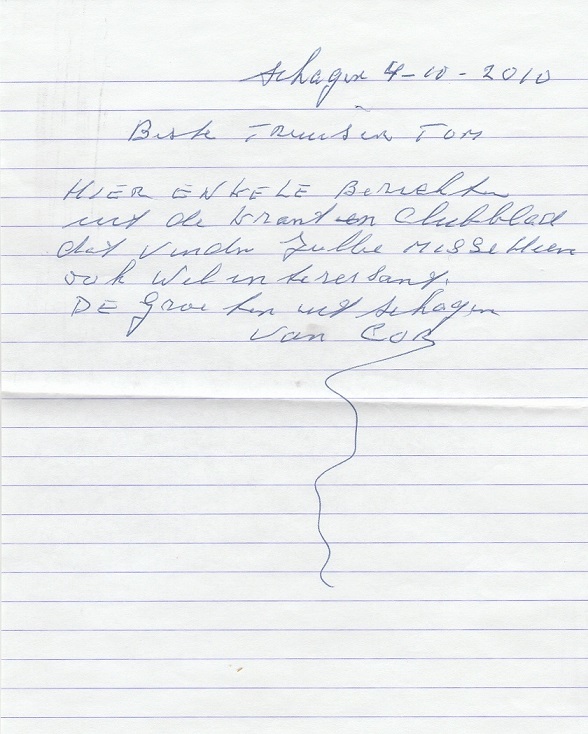 Schagen 4-10-2010
Beste Truus en Tom
HIER ENKELE Berichten
uit de krant en Clubblad
dat vinden Jullie MISSCHIEN
ook wel interessant.
DE Groeten uit Schagen
van COR